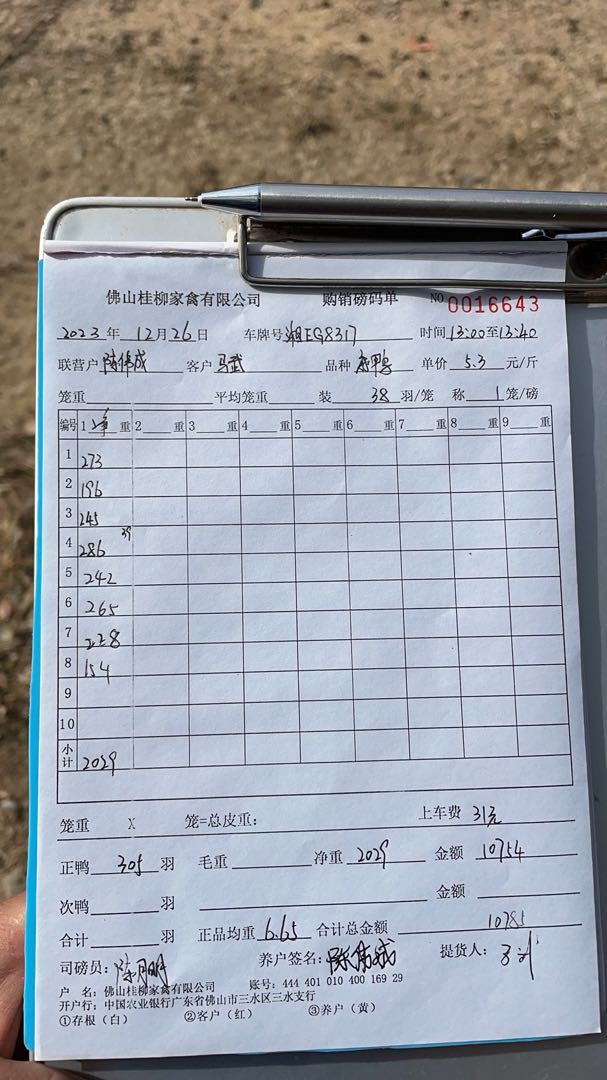 佛山桂柳家禽有限公司 购销磅码单 NO 0016643
2023 年 12 月 26 日 车牌号 湘EG8317 时间 13:00 至 13:40
联营户 陈伟成 客户 马武 品种 单价 5.3 元/斤
笼重 平均笼重 装 38 羽/笼 称 1 笼/磅
编号 1 净 重 2 重 3 重 4 重 5 重 6 重 7 重 8 重 9 重
1 273
2 196
3 245
4 286 39
5 242
6 265
7 228
8 154
9
10
小计 2029
笼重 X 笼=总皮重: 上车费 31元
正鸭 305 羽 毛重 净重 2029 金额 10754
次鸭 羽 金额
合计 羽 正品均重 6.65 合计总金额 10785
司磅员: 养户签名: 陈伟成 提货人:
户 名: 佛山桂柳家禽有限公司 账号: 444 401 010 400 169 29
开户行: 中国农业银行广东省佛山市三水区三水支行
①存根(白) ②客户(红) ③养户(黄)